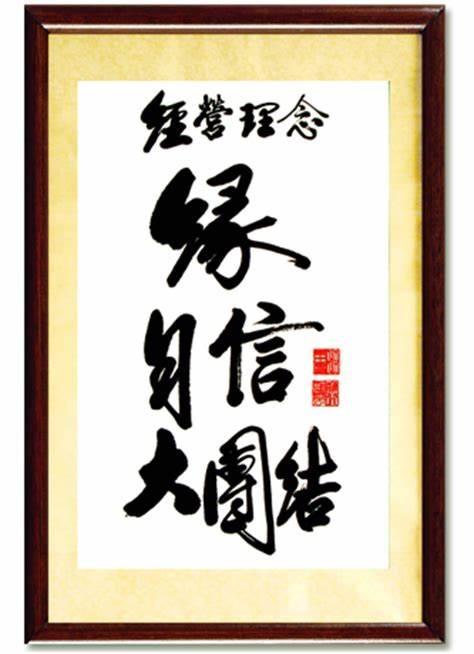 經營理念
緣
自信
大團結